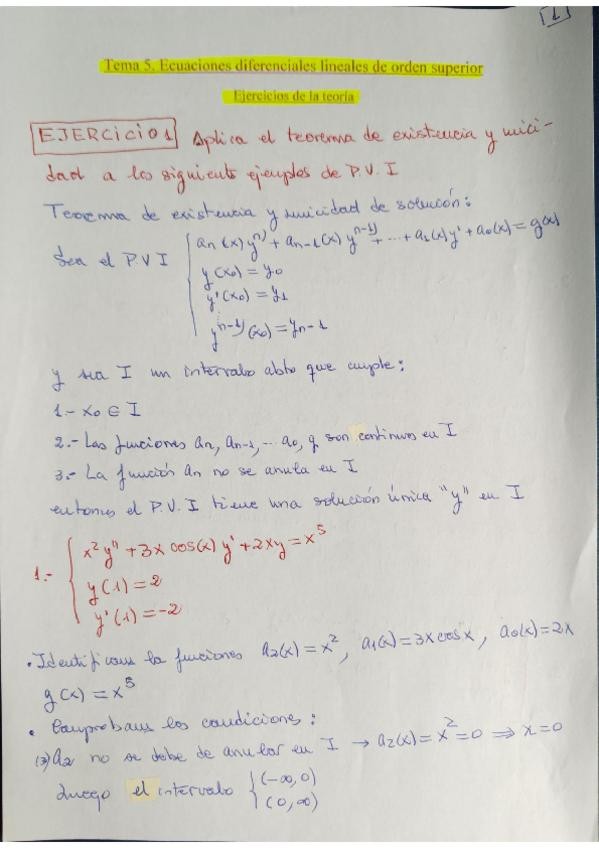 1
Tema 5. Ecuaciones diferenciales lineales de orden superior
Ejercicios de la teoría
EJERCICIO 1 Aplica el teorema de existencia y unici-
dad a los siguients ejemplos de P.V.I
Teorema de existencia y unicidad de solución:
Sea el P.V.I
an(x)y^n) + an-1(x)y^n-1) + ... + a1(x)y' + a0(x) = g(x)
y(x0) = y0
y'(x0) = y1
y^n-1)(x0) = yn-1
y sea I un intervalo abto que cumple:
1.- x0 ∈ I
2.- Las funciones an, an-1, ... a0, g son continuas en I
3.- La función an no se anula en I
entonces el P.V.I tiene una solución única "y" en I
1.-
x²y'' + 3x cos(x) y' + 2xy = x⁵
y(1) = 2
y'(1) = -2
• Identificams la funciones a2(x) = x², a1(x) = 3x cos x, a0(x) = 2x
g(x) = x⁵
• Comprobams los condiciones:
(3) a2 no se debe de anular en I → a2(x) = x² = 0 ⇒ x = 0
Luego el intervalo
(-∞, 0)
(0, ∞)